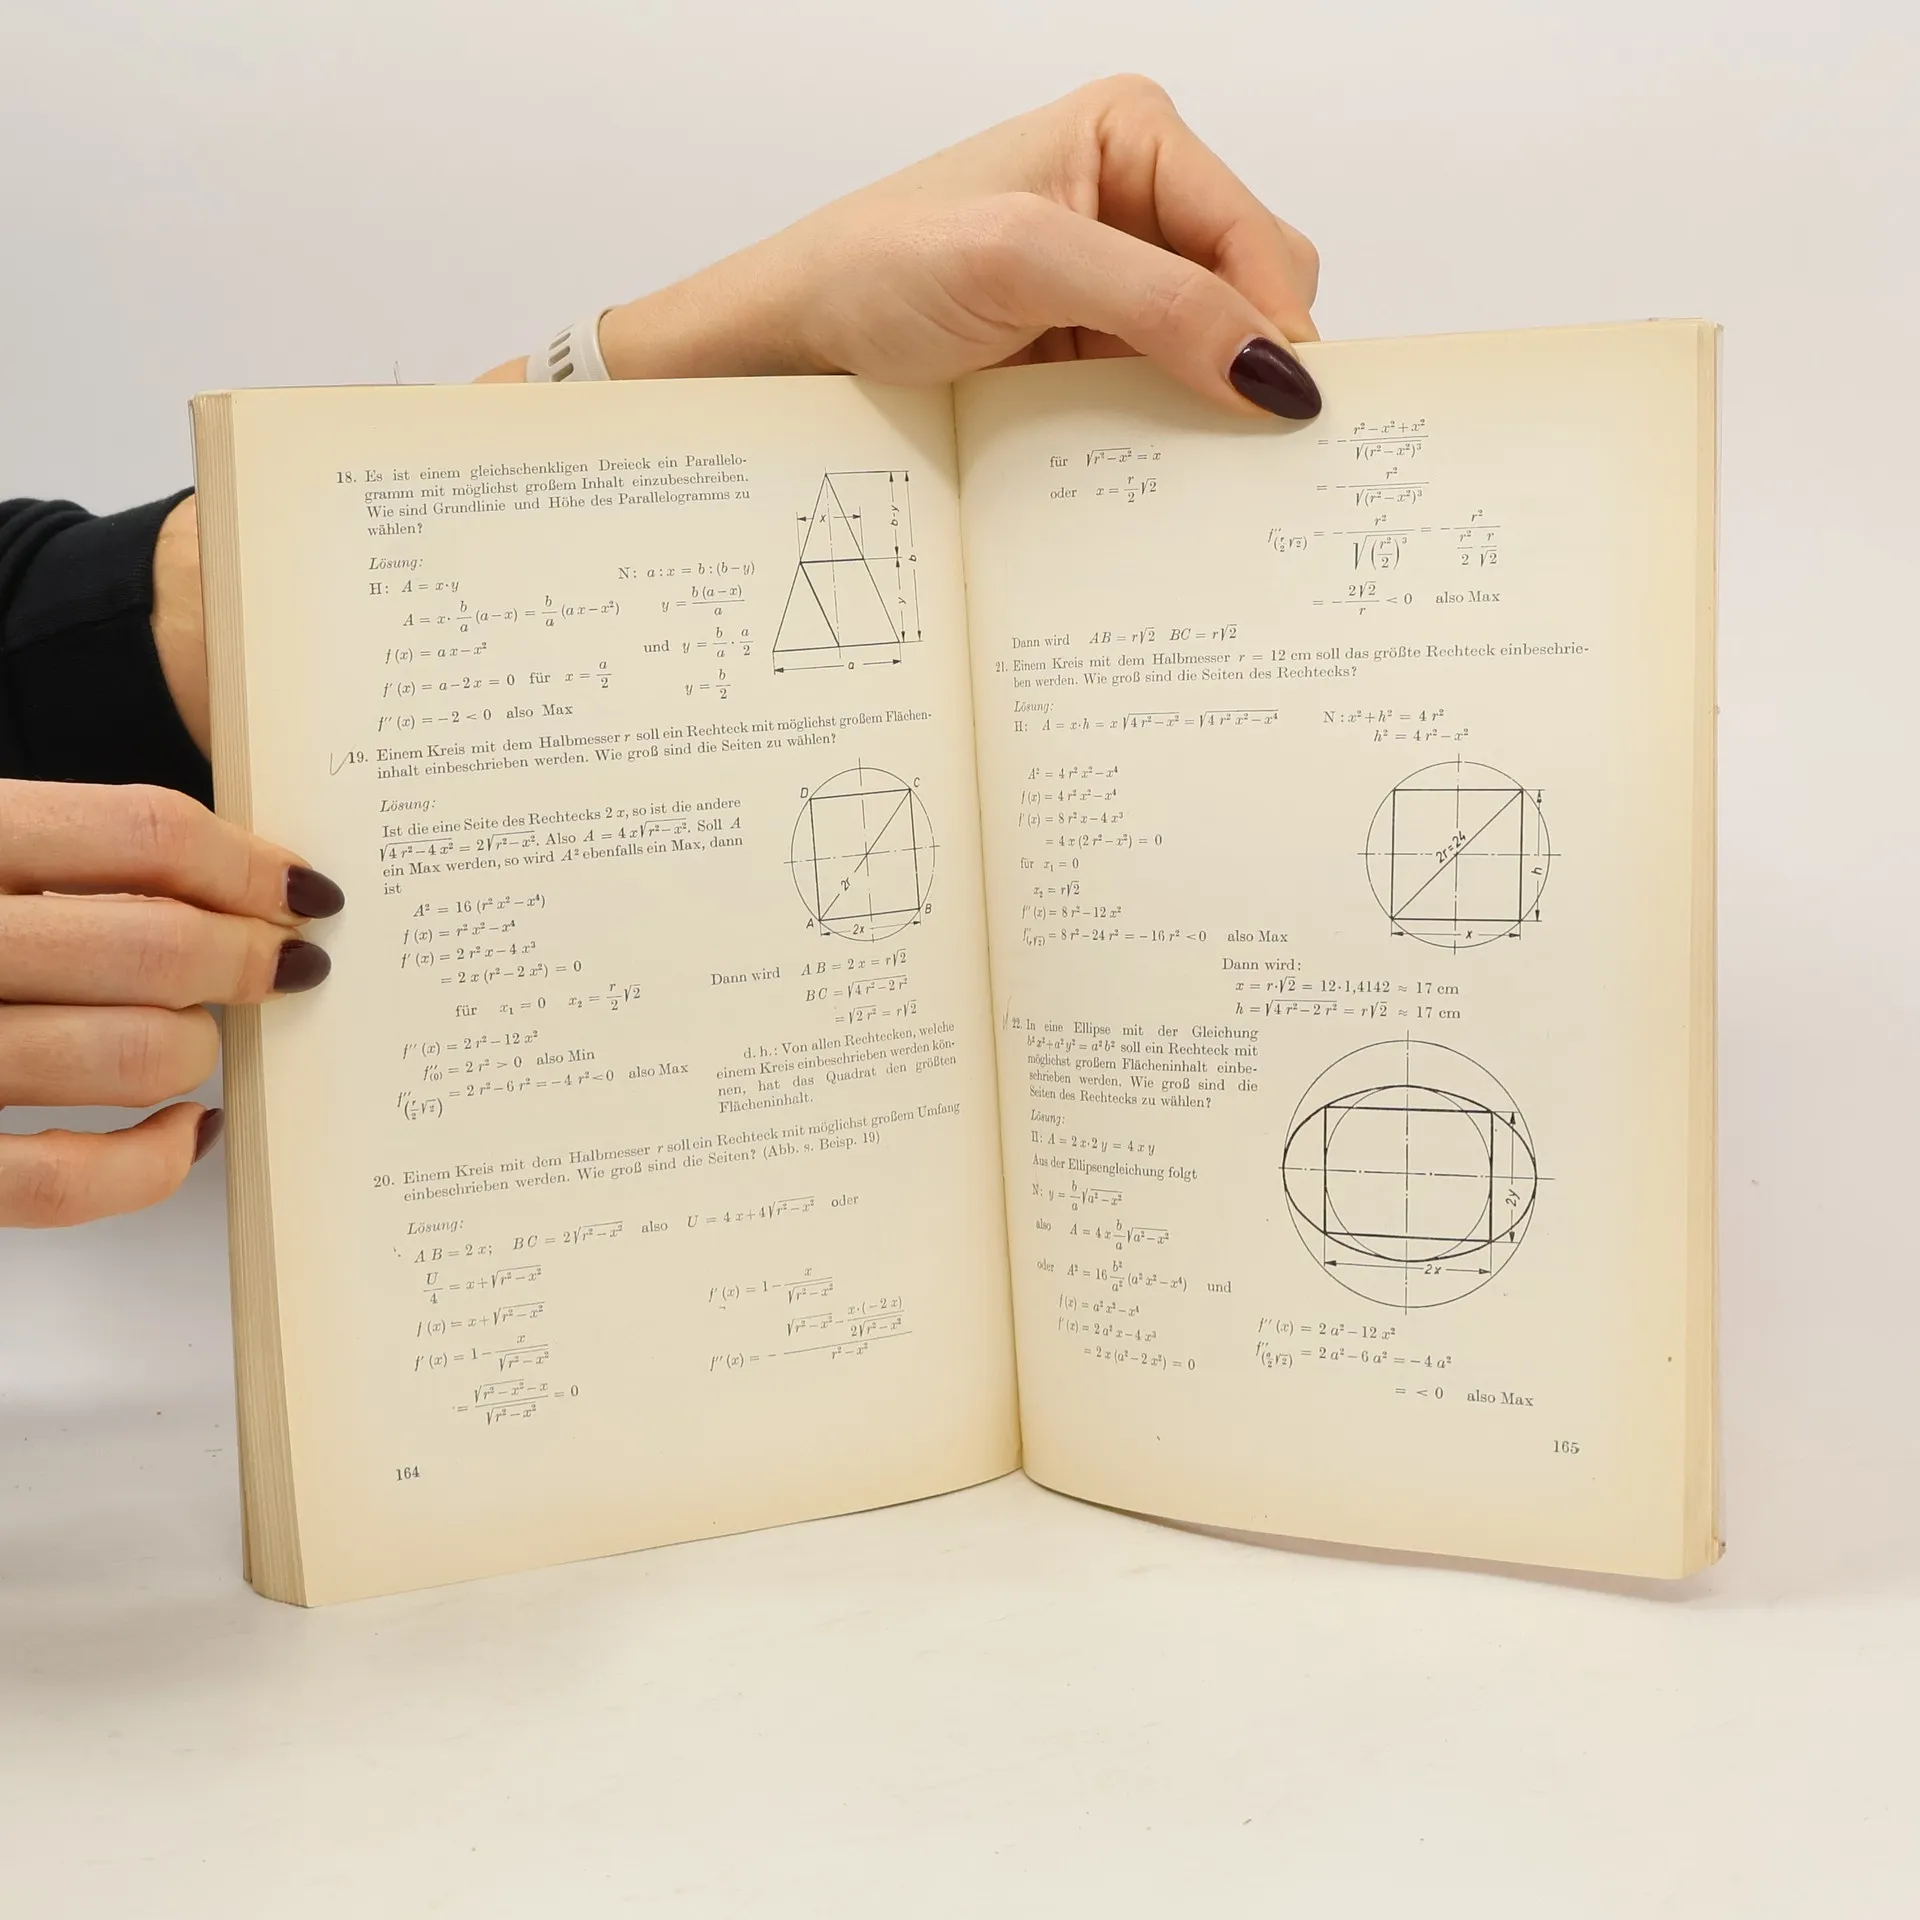 18. Es ist einem gleichschenkligen Dreieck ein Parallelo-
gramm mit möglichst großem Inhalt einzubeschreiben.
Wie sind Grundlinie und Höhe des Parallelogramms zu
wählen?
Lösung:
H: A = x·y N: a : x = b : (b−y)
A = x· b/a (a−x) = b/a (a x−x²) y = b (a−x)/a
f (x) = a x−x² und y = b/a · a/2
f′ (x) = a−2 x = 0 für x = a/2 y = b/2
f″ (x) = −2 < 0 also Max
x
b-y
b
y
a
19. Einem Kreis mit dem Halbmesser r soll ein Rechteck mit möglichst großem Flächen-
inhalt einbeschrieben werden. Wie groß sind die Seiten zu wählen?
Lösung:
Ist die eine Seite des Rechtecks 2 x, so ist die andere
√(4 r²−4 x²) = 2√(r²−x²). Also A = 4 x√(r²−x²). Soll A
ein Max werden, so wird A² ebenfalls ein Max, dann
ist
A² = 16 (r² x²−x⁴)
f (x) = r² x²−x⁴
f′ (x) = 2 r² x−4 x³
= 2 x (r²−2 x²) = 0
für x₁ = 0 x₂ = r/2 √2
f″ (x) = 2 r²−12 x²
f″(0) = 2 r² > 0 also Min
f″(r/2 √2) = 2 r²−6 r² = −4 r²<0 also Max
D
C
A
B
2r
2x
Dann wird A B = 2 x = r√2
B C = √(4 r²−2 r²)
= √(2 r²) = r√2
d. h.: Von allen Rechtecken, welche
einem Kreis einbeschrieben werden kön-
nen, hat das Quadrat den größten
Flächeninhalt.
20. Einem Kreis mit dem Halbmesser r soll ein Rechteck mit möglichst großem Umfang
einbeschrieben werden. Wie groß sind die Seiten? (Abb. s. Beisp. 19)
Lösung:
A B = 2 x; B C = 2√(r²−x²) also U = 4 x+4√(r²−x²) oder
U/4 = x+√(r²−x²)
f (x) = x+√(r²−x²)
f′ (x) = 1− x/√(r²−x²)
= (√(r²−x²)−x)/√(r²−x²) = 0
f′ (x) = 1− x/√(r²−x²)
f″ (x) = − (√(r²−x²)− x·(−2 x)/(2√(r²−x²)))/(r²−x²)
164
für √(r²−x²) = x
oder x = r/2 √2
= − (r²−x²+x²)/√((r²−x²)³)
= − r²/√((r²−x²)³)
f″(r/2 √2) = − r²/√((r²/2)³) = − r²/(r²/2 r/√2)
= − 2√2/r < 0 also Max
Dann wird AB = r√2 BC = r√2
21. Einem Kreis mit dem Halbmesser r = 12 cm soll das größte Rechteck einbeschrie-
ben werden. Wie groß sind die Seiten des Rechtecks?
Lösung:
H: A = x·h = x √(4 r²−x²) = √(4 r² x²−x⁴) N : x²+h² = 4 r²
h² = 4 r²−x²
A² = 4 r² x²−x⁴
f (x) = 4 r² x²−x⁴
f′ (x) = 8 r² x−4 x³
= 4 x (2 r²−x²) = 0
für x₁ = 0
x₂ = r√2
f″ (x) = 8 r²−12 x²
f″(r√2) = 8 r²−24 r² = −16 r² <0 also Max
2r=24
h
x
Dann wird:
x = r·√2 = 12·1,4142 ≈ 17 cm
h = √(4 r²−2 r²) = r√2 ≈ 17 cm
22. In eine Ellipse mit der Gleichung
b² x²+a² y² = a² b² soll ein Rechteck mit
möglichst großem Flächeninhalt einbe-
schrieben werden. Wie groß sind die
Seiten des Rechtecks zu wählen?
Lösung:
H: A = 2 x·2 y = 4 x y
Aus der Ellipsengleichung folgt
N: y = b/a √(a²−x²)
also A = 4 x b/a √(a²−x²)
oder A² = 16 b²/a² (a² x²−x⁴) und
f (x) = a² x²−x⁴
f′ (x) = 2 a² x−4 x³
= 2 x (a²−2 x²) = 0
2y
2x
f″ (x) = 2 a²−12 x²
f″(a/2 √2) = 2 a²−6 a² = −4 a²
= < 0 also Max
165